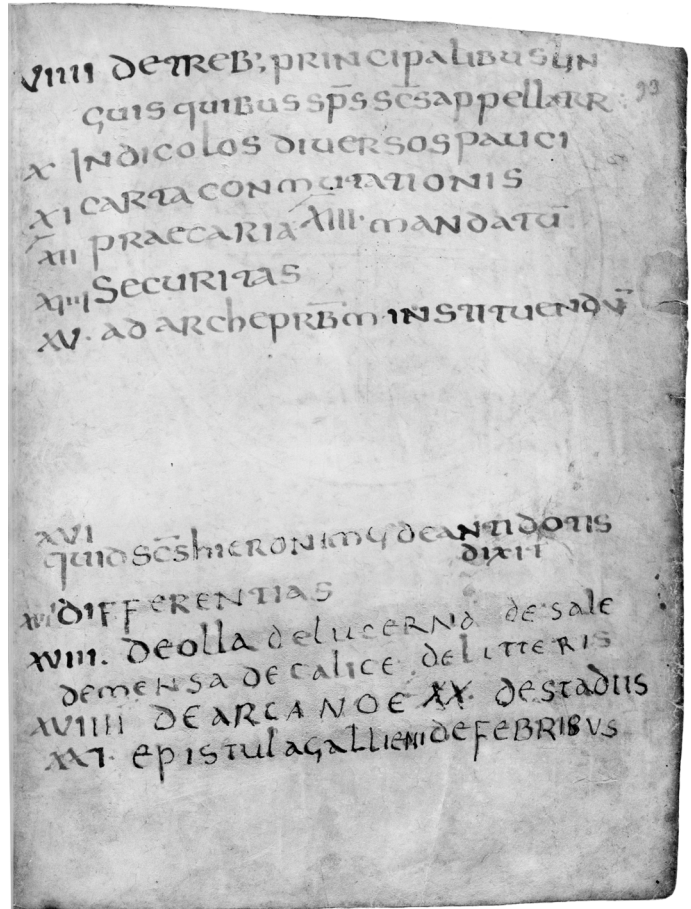 VIIII DETREB; PRINCIPALIBUS LIN
GUIS QUIBUS SP̄S SC̄S APPELLARR
93
X INDICOLOS DIUERSOS PAUCI
XI CARTA CONMUTATIONIS
XII PRAECARIA XIII· MANDATŪ
XIIII SECURITAS
XV· AD ARCHEPRB̄M· INSTITUENDŪ
XVI
QUID SC̄S HIERONIMUS DE ANTIDOTIS
DIXIT
XVII DIFFERENTIAS
XVIII. DE OLLA DE LUCERNA DE SALE
DE MENSA DE CALICE DE LITTERIS
XVIIII DE ARCA NOE XX· DE STADIIS
XXI· EPISTULA GALLIENI DE FEBRIBUS